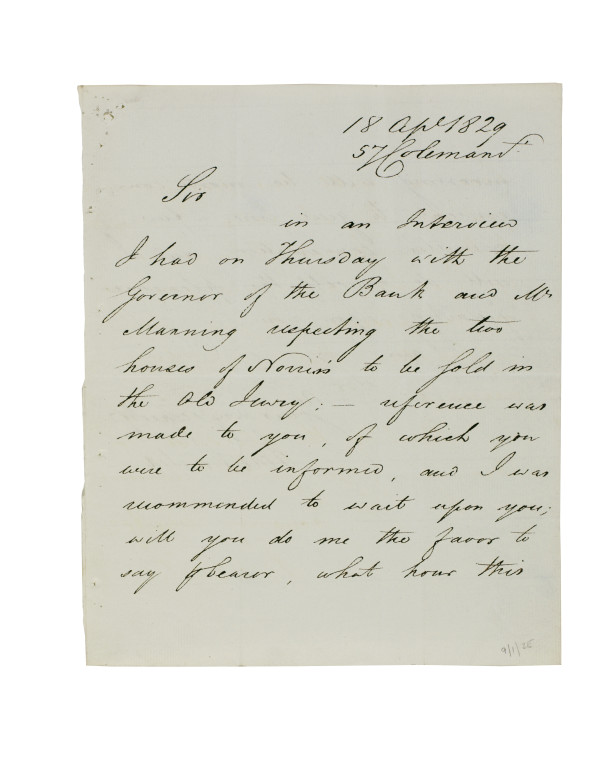 18 Apl. 1829
57 Coleman St.
Sir
in an Interview
I had on Thursday with the
Governor of the Bank and Mr
Manning respecting the two
houses of Norris's to be sold in
the Old Jewry; — reference was
made to you, of which you
were to be informed, and I was
recommended to wait upon you;
will you do me the favor to
say p bearer, what hour this
9/1/25